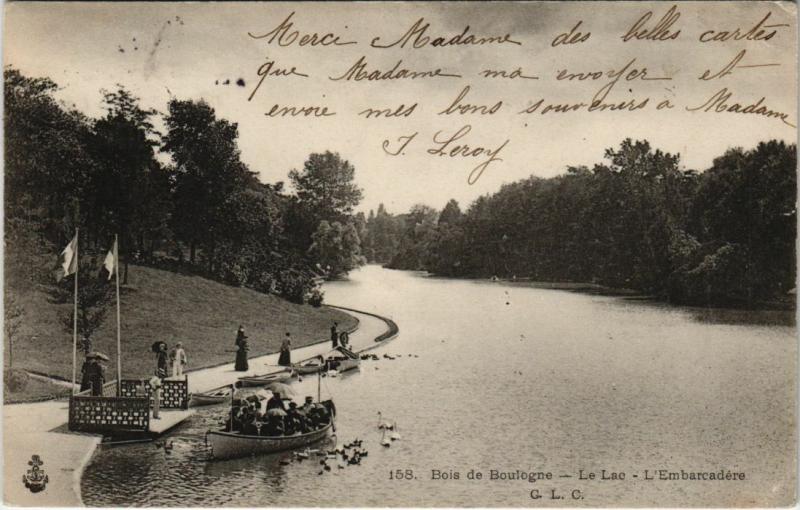 Merci Madame des belles cartes
que Madame ma envoyer et
envoie mes bons souvenirs a Madame
J. Leroy
158. Bois de Boulogne — Le Lac - L'Embarcadère
C. L. C.